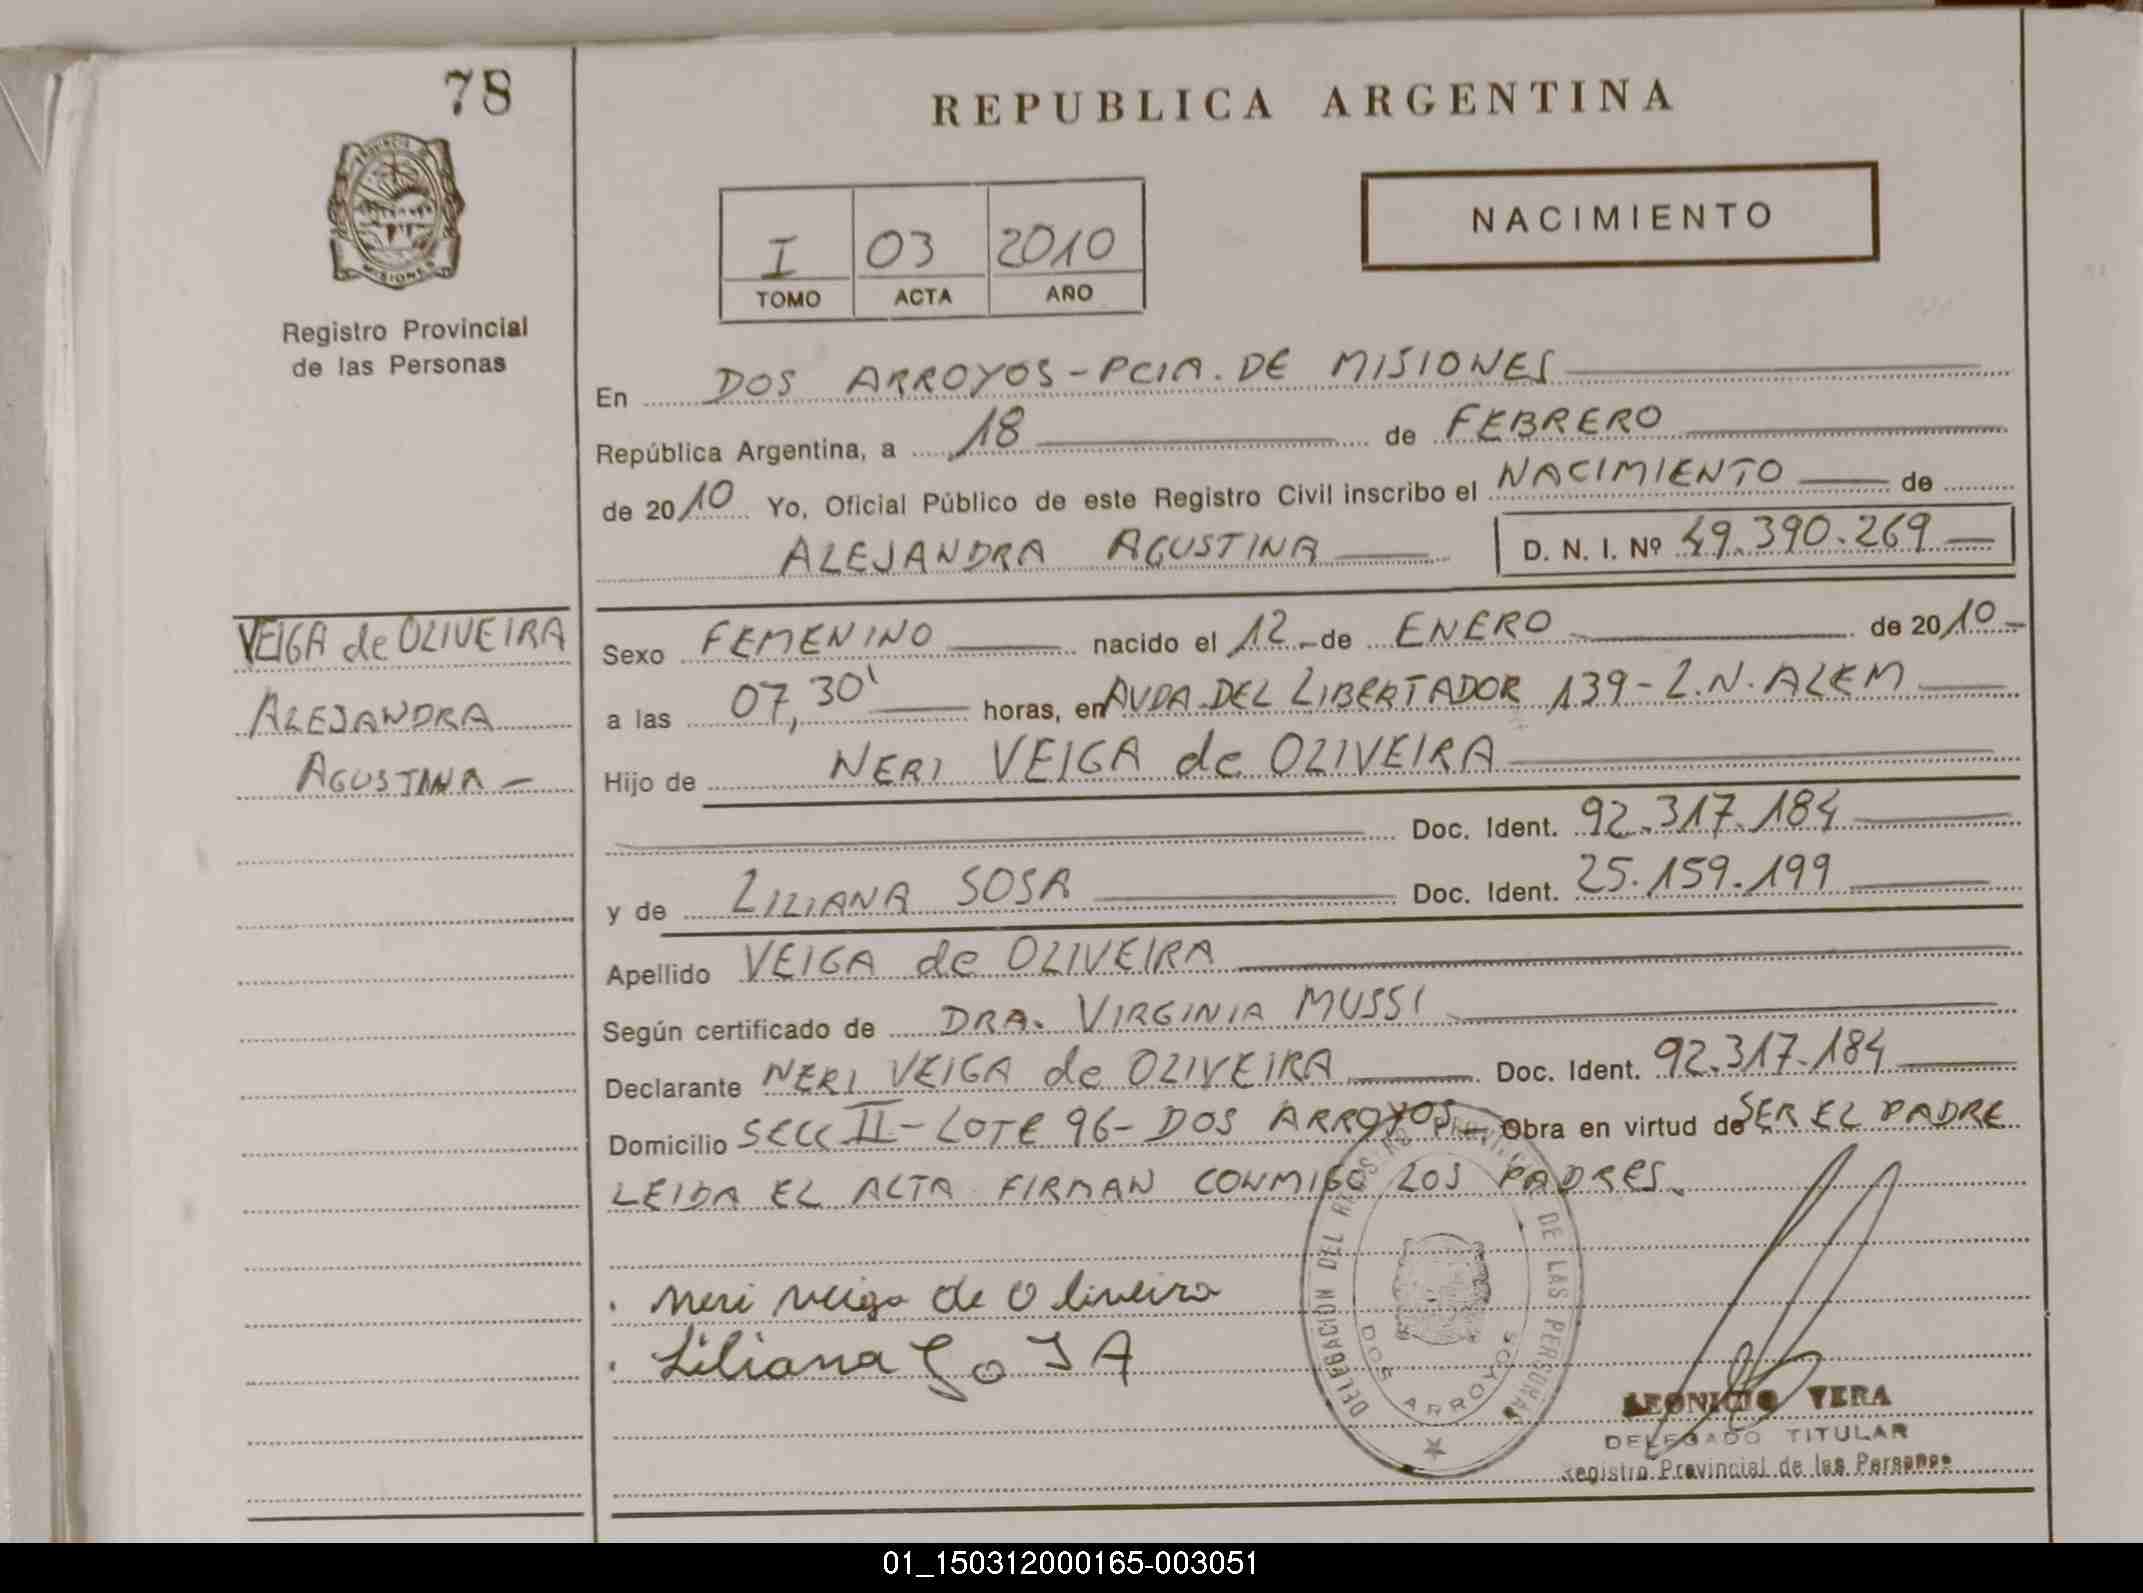 78
REPUBLICA ARGENTINA
NACIMIENTO
I 03 2010
TOMO ACTA AÑO
PROVINCIA DE
MISIONES
Registro Provincial
de las Personas
En DOS ARROYOS - PCIA. DE MISIONES
República Argentina, a 18 de FEBRERO
de 2010 Yo, Oficial Público de este Registro Civil inscribo el NACIMIENTO de
ALEJANDRA AGUSTINA D. N. I. Nº 49.390.269
VEIGA de OLIVEIRA
ALEJANDRA
AGUSTINA -
Sexo FEMENINO nacido el 12 - de ENERO de 2010 -
a las 07,30' horas, en AVDA. DEL LIBERTADOR 139 - L.N. ALEM
Hijo de NERI VEIGA de OLIVEIRA
Doc. Ident. 92.317.184
y de LILIANA SOSA Doc. Ident. 25.159.199
Apellido VEIGA de OLIVEIRA
Según certificado de DRA. VIRGINIA MUSSI
Declarante NERI VEIGA de OLIVEIRA Doc. Ident. 92.317.184
Domicilio SECC II - LOTE 96 - DOS ARROYOS - Obra en virtud de SER EL PADRE
LEIDA EL ACTA FIRMAN CONMIGO LOS PADRES.
Neri Veiga de Oliveira
Liliana SoSA
DELEGACION DEL DE LAS PERSONAS
DOS ARROYOS
LEONICIO VERA
DELEGADO TITULAR
Registro Provincial de las Personas
01_150312000165-003051